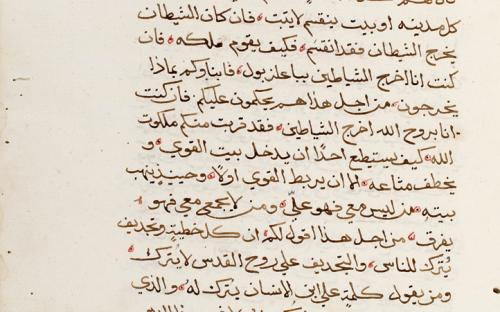 كل مدينه او بيت ينقسم لا يثبت فان كان الشيطان
يخرج الشيطان فقد انقسم فكيف يقوم ملكه فان
كنت انا اخرج الشياطين بباعلزبول فابناوكم بماذا
يخرجون من اجل هذا هم يحكمون عليكم فان كنت
انا بروح الله اخرج الشياطين فقد قربت منكم ملكوت
الله كيف يستطيع احدًا ان يدخل بيت القوي و
يخطف متاعه الا ان يربط القوي اولًا وحينيذٍ ينهب
بيته من ليس معي فهو عليّ ومن لا يجمع معي فهو
يفرق من اجل هذا اقول لكم ان كل خطيةٍ وتجديف
يُترك للناس والتجديف علي روح القدس لا يترك
ومن يقول كلمةٍ علي ابن الانسان يترك لهُ والذي